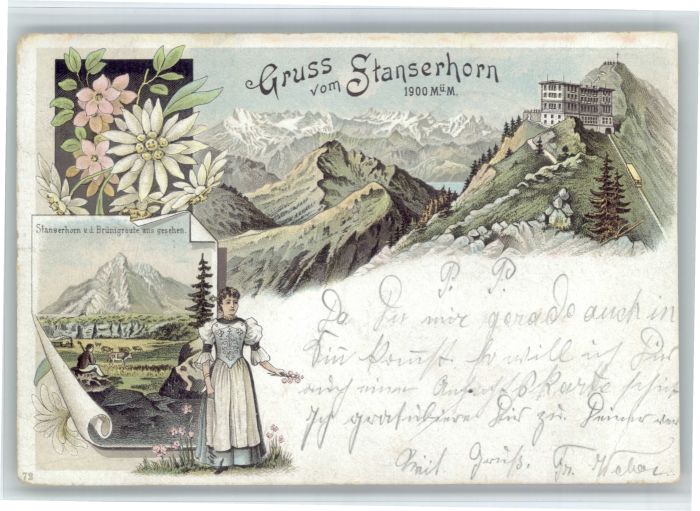 Gruss
vom Stanserhorn
1900 M.ü.M.
Stanserhorn v.d. Brünigroute aus gesehen.
P. P.
Da Du mir gerade auch in
Sinn kommst so will ich Dir
auch eine Ansichtskarte
Ich gratuliere Dir zu Deiner
Mit Gruß. Fr. Weber
72